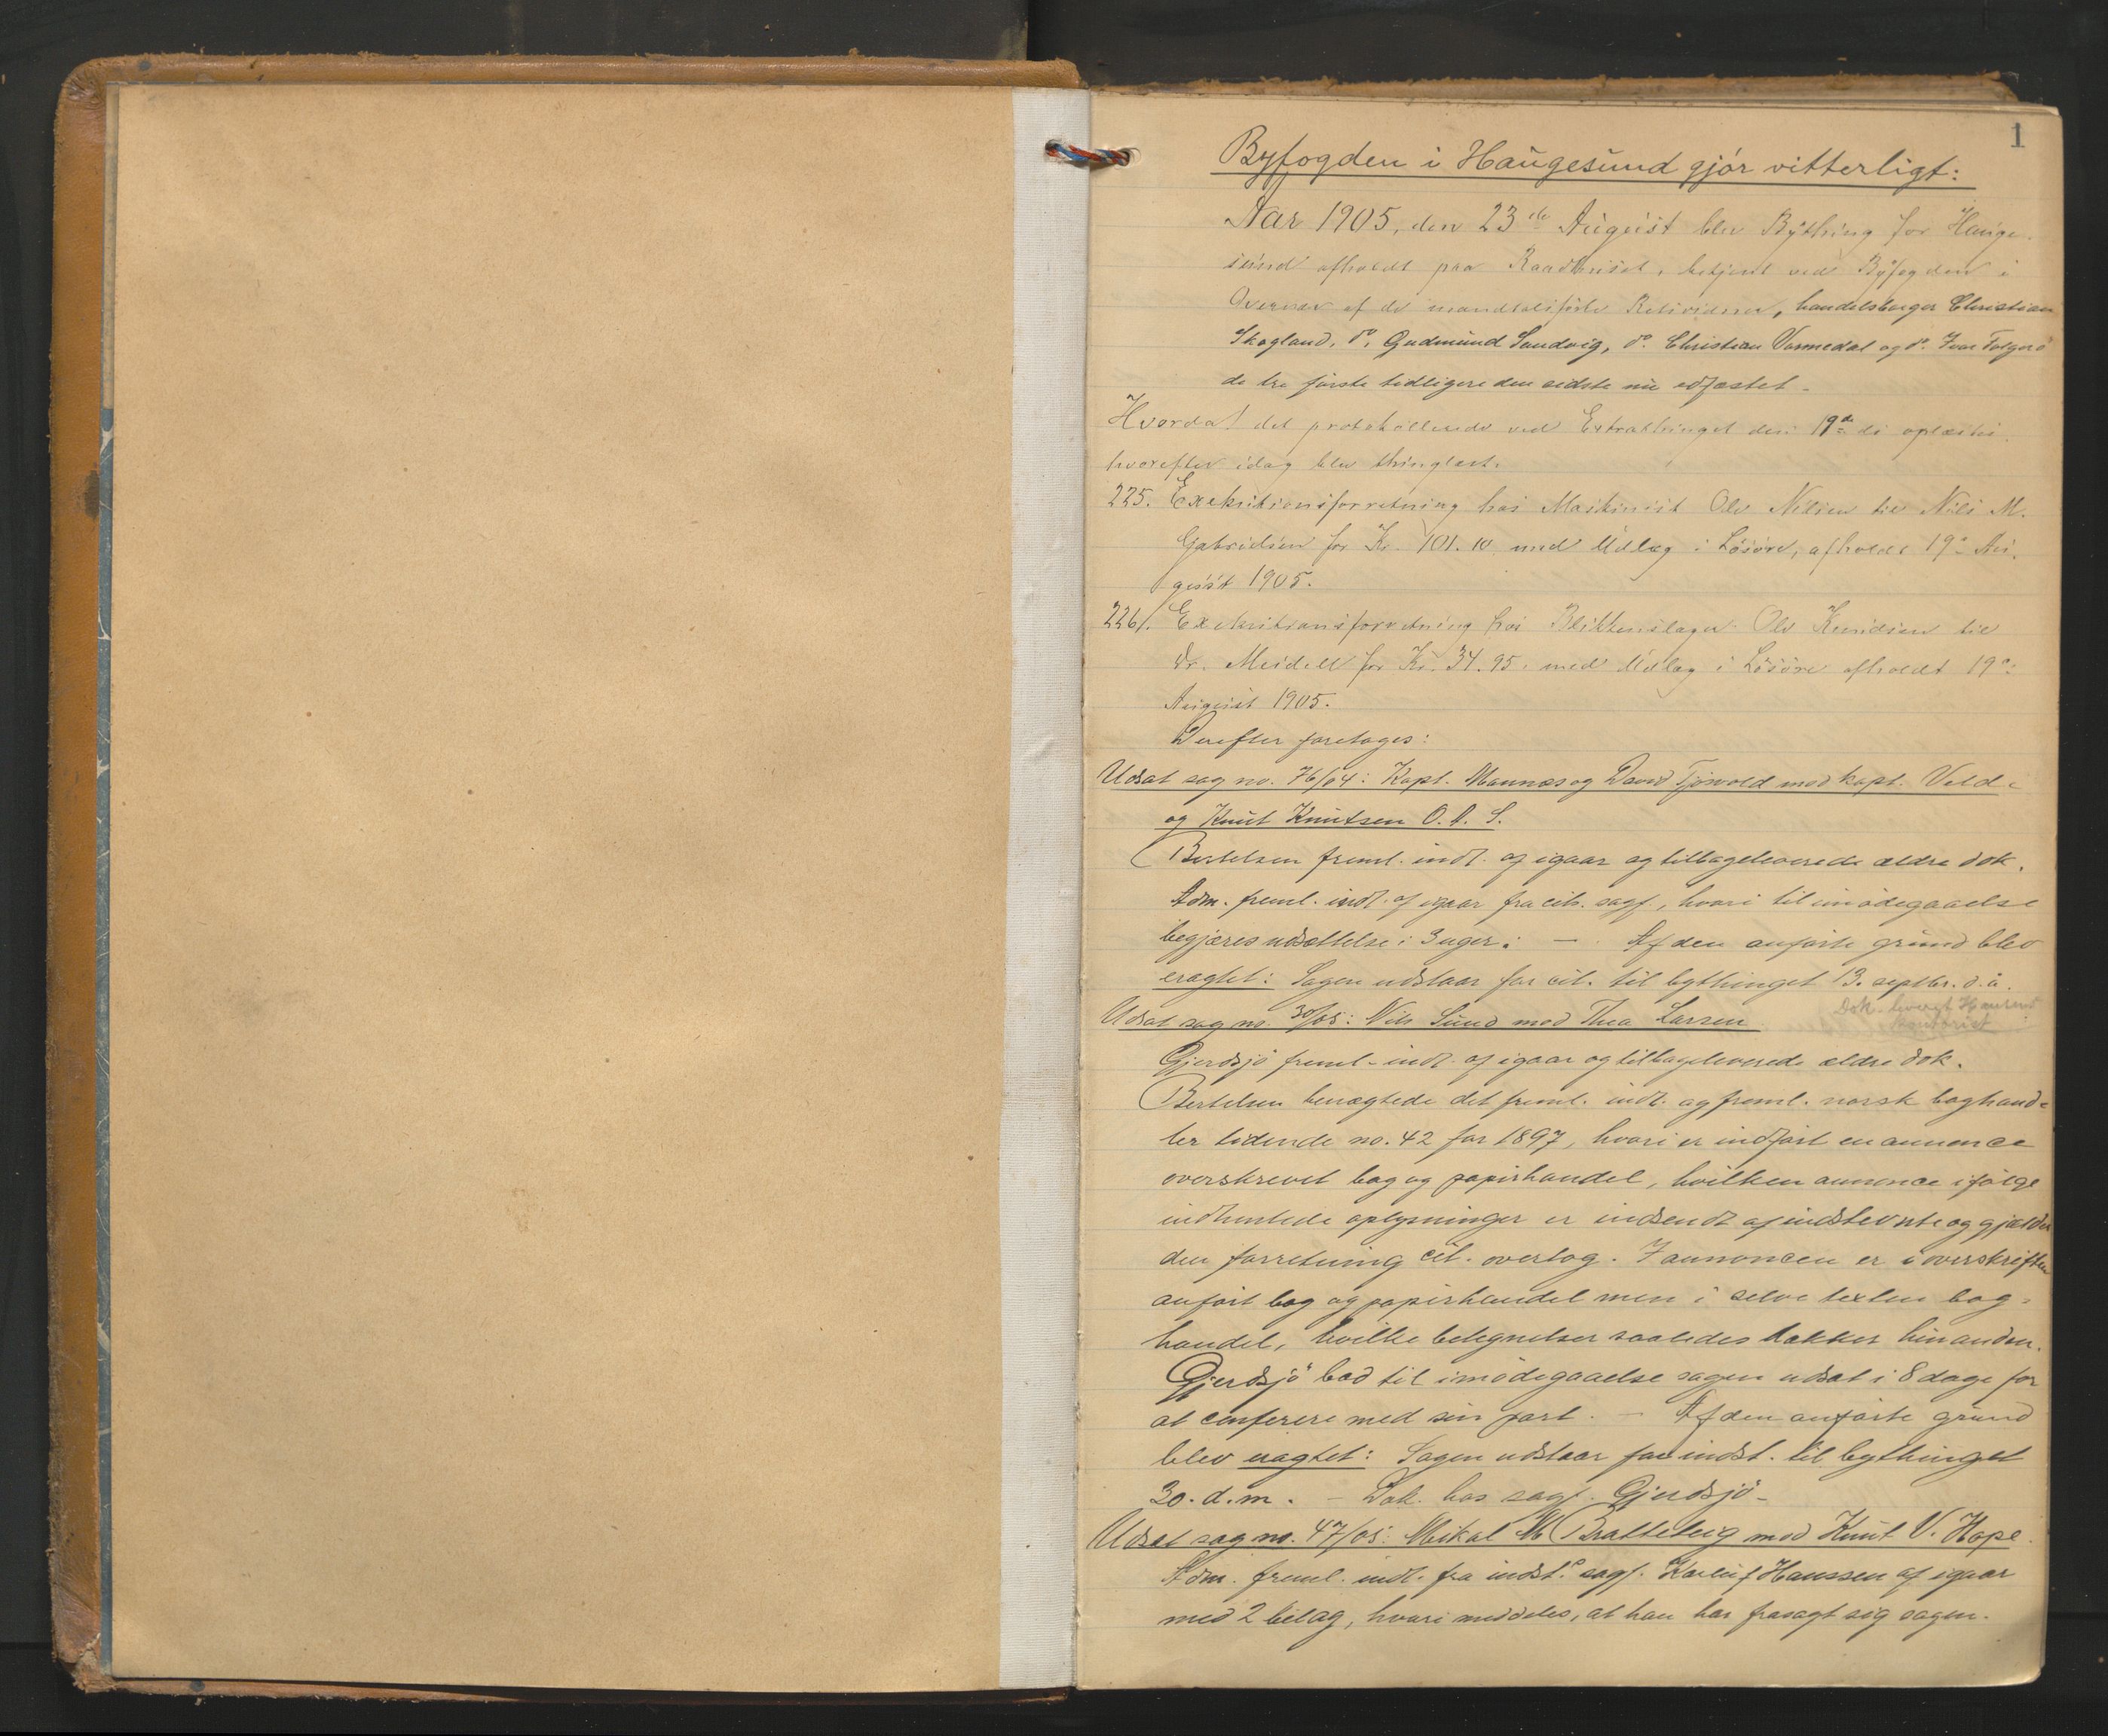 1
Byfogden i Haugesund gjör vitterligt:
Aar 1905, den 23de August blev Bything for Hauge-
sund afholdt paa Raadhuset, betjent ved Byfogden i
Overvær af de mandtalsførte Retsvidner, handelsborger Christian
Skogland, do. Gudmund Sandvig, do. Christian Vormedal og do. Ivar
de tre første tidligere den sidste nu edfæstet.
Hvorda! det protokollerede ved Extrathinget den 19de ds oplæstes
hvorefter idag blev thinglæst.
225. Exekutionsforretning hos Maskinist Ole Nilsen til Nils M.
Gabrielsen for Kr. 101.10 med Udlæg i Løsøre, afholdt 19de Au-
gust 1905.
226/. Exekutionsforretning hos Blikkenslager Ole Knudsen til
Dr. Meidell for Kr. 34.95 med Udlæg i Løsøre afholdt 19de
August 1905.
Derefter foretoges:
Udsat sag no. 76/04: Kapt. Mannes og David Tjøsvold mod kapt. Velde
og Knut Knutsen O. A. S.
Bertelsen freml. indl. af igaar og tilbageleverede ældre dok.
Adm. freml. indl. af igaar fra cit. sagf., hvori til imødegaaelse
begjæres udsættelse i 3 uger. — Af den anførte grund blev
eragtet: Sagen udstaar for cit. til bythinget 13. septbr. d. å.
Dok.
Udsat sag no. 30/05: Nils Sund mod Thea Larsen
Gjerdsjö freml. indl. af igaar og tilbageleverede ældre dok.
Bertelsen benægtede det freml. indl. og freml. norsk boghand-
ler tidende no. 42 for 1897, hvori er indført en annonce
overskrevet bog og papirhandel, hvilken annonce ifølge
indhentede oplysninger er indsendt af indstevnte og gjælder
den forretning cit. overtog. I annoncen er i overskriften
anført bog og papirhandel men i selve texten bog-
handel, hvilke betegnelser saaledes dækker hinanden.
Gjerdsjö bad til imødegaaelse sagen udsat i 8 dage for
at conferere med sin part. — Af den anførte grund
blev eragtet: Sagen udstaar for indst. til bythinget
30. d. m. — Dok. hos sagf. Gjerdsjö.
Udsat sag no. 47/05: Mikal M. Bratteteig mod Knut V. Hope.
Adm. freml. indl. fra indst. sagf. Hanssen af igaar
med 2 bilag, hvori meddeles, at han har frasagt sig sagen.